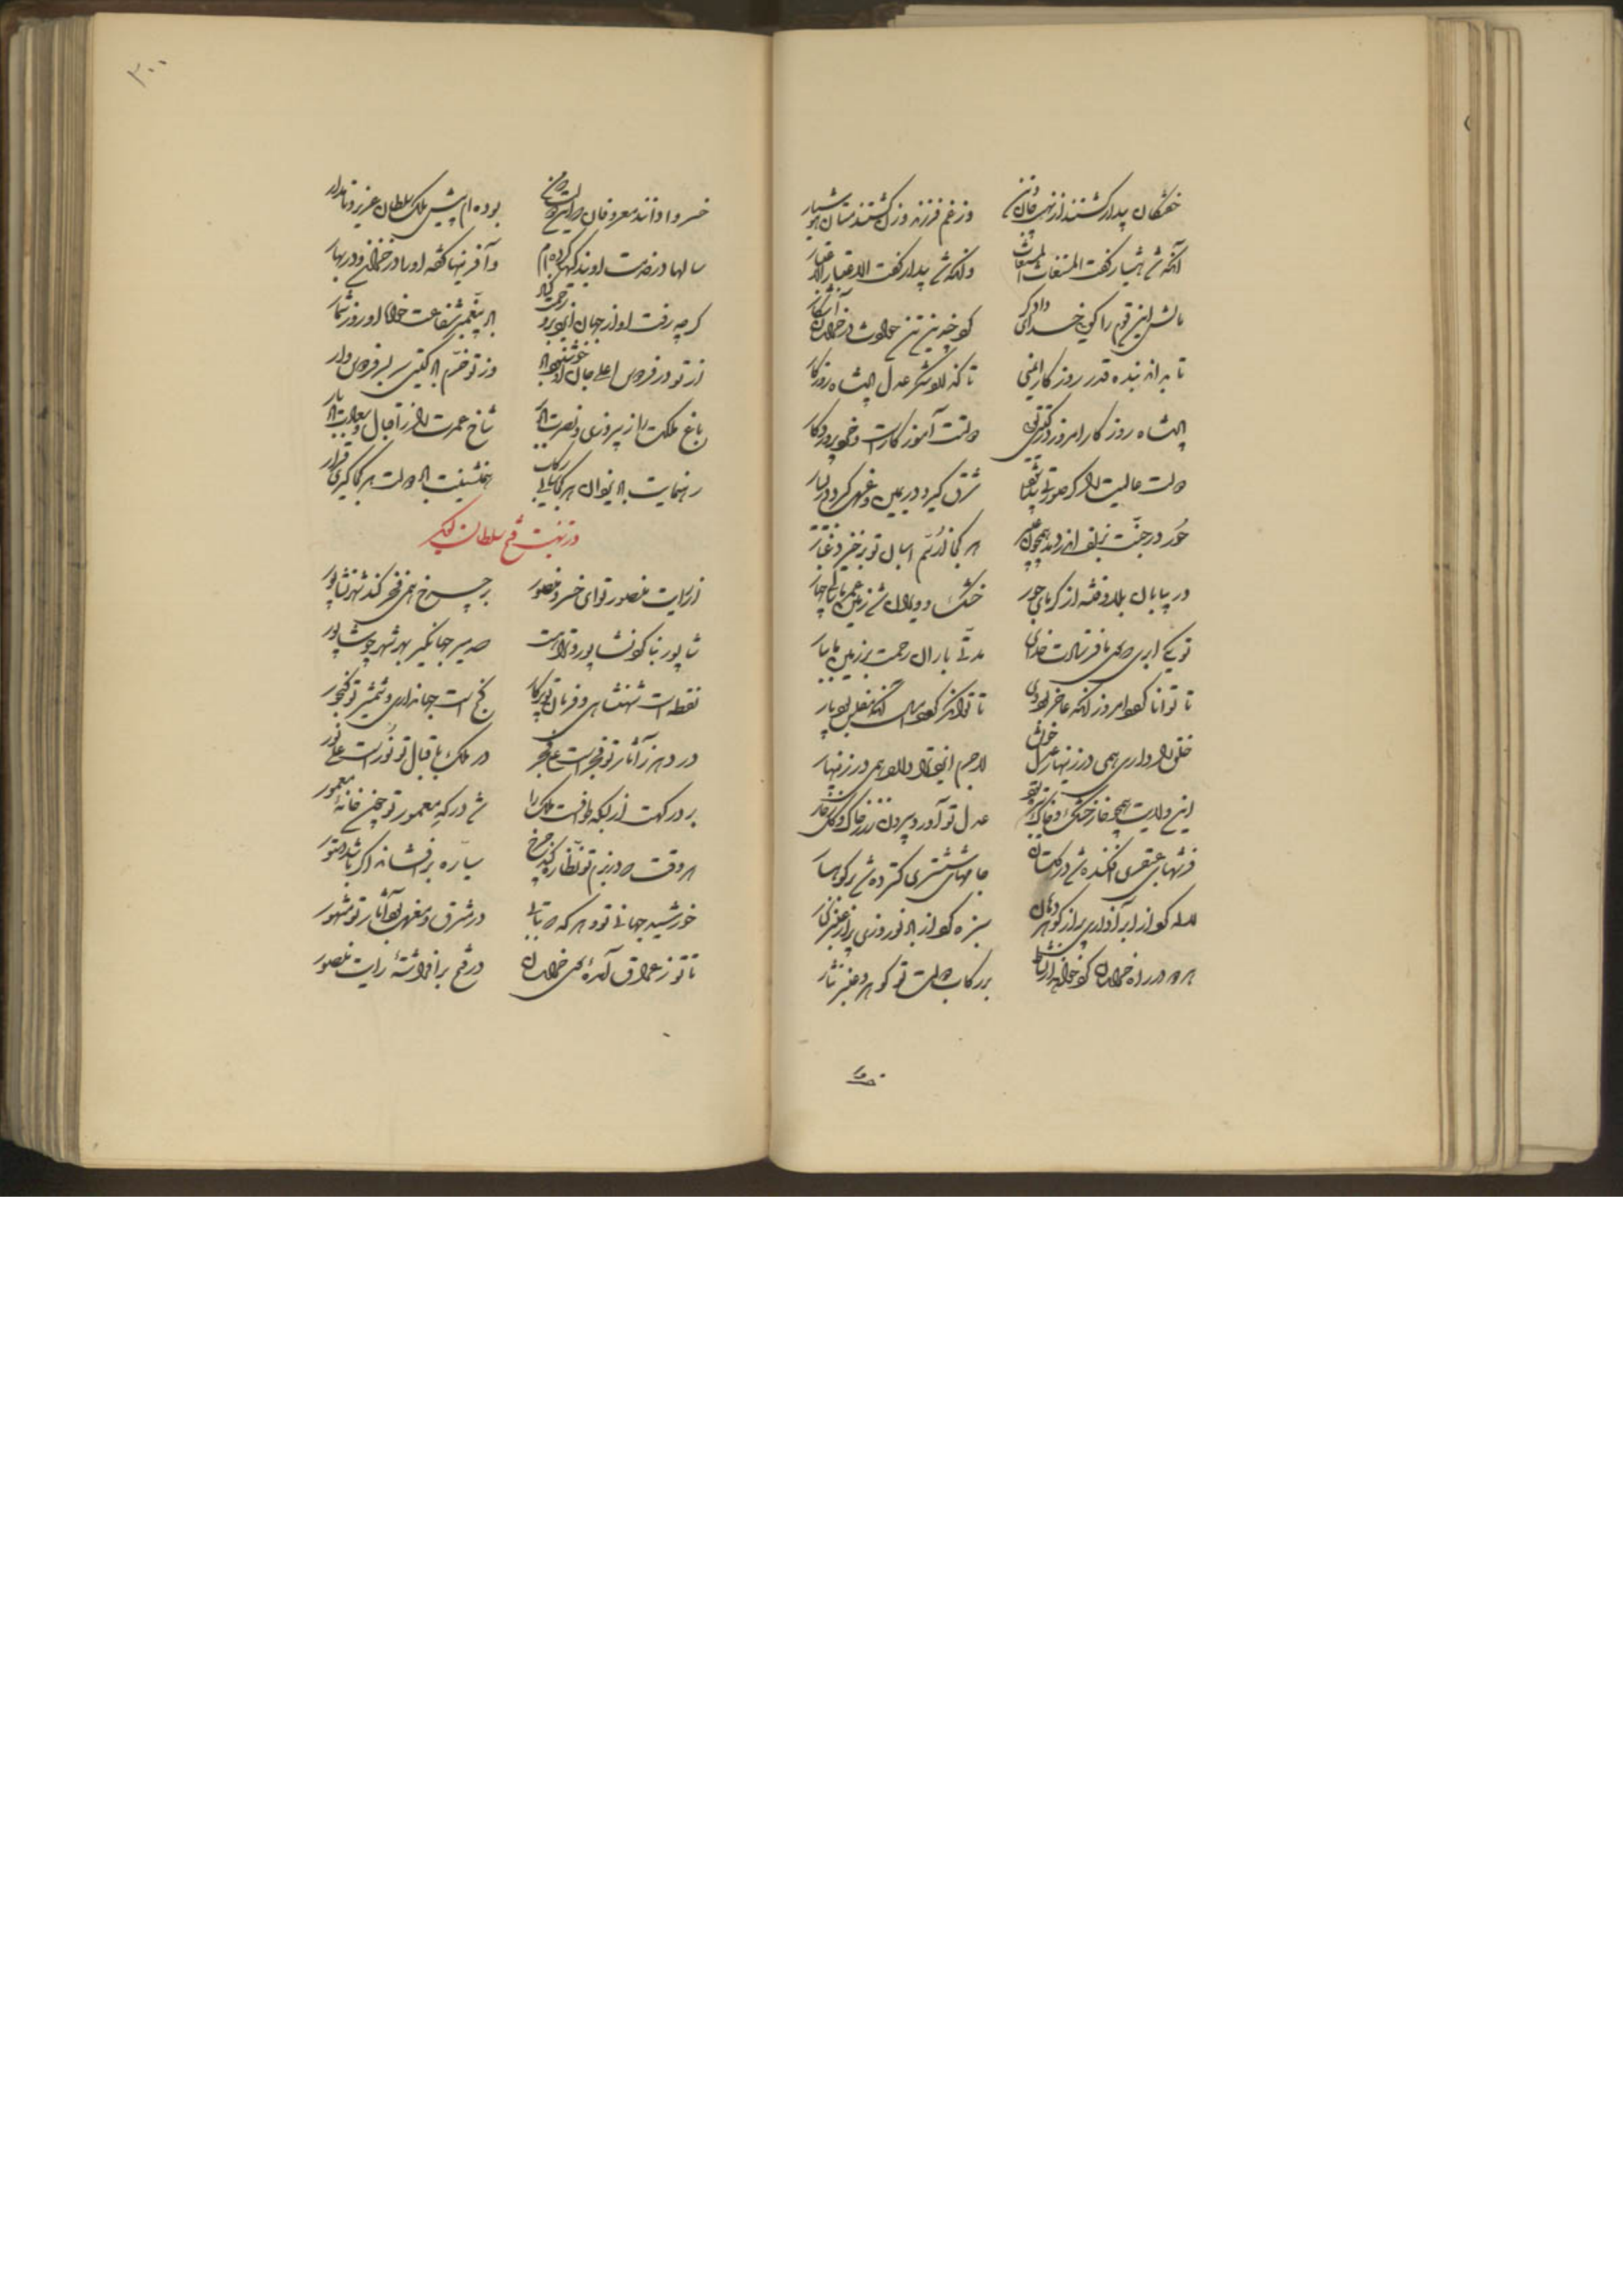 خفتگان بیدار گشتند از نهیب جان و تن
وز غم فرزند و زن گشتند مستان هوشیار
آنکه شد هشیار گفت المستغاث المستغاث
وانکه شد بیدار گفت الاعتبار الاعتبار
مالش این قوم را گویی خدای دادگر
تا بداند بنده قدر روزگار ایمنی
تا کند او شکر عدل پادشاه روزگار
پادشاه روزگار امروز در گیتی تویی
دولت آموزگارست و خرد پروردگار
دولت عالیت را گر صورتی پیدا شود
شرق گیرد در یمین و غرب گیرد در یسار
حور در جنت بزلف اندر دمد همچون عبیر
هر کجا از سم اسبان تو برخیزد غبار
در بیابان بلا و فتنه از گرمای جور
خشک و ویران شد زمین
تو یکی ابری که
مدتی باران رحمت بر زمین ما ببار
تا توانا گردد امروز آنکه عاجز بود دی
تا توانگر گردد امسال آنکه مفلس بود پار
خلق را داری همی در زینهار عدل خویش
لاجرم ایزد ترا دارد همی در زینهار
این ولایت همچو خار خشک بود و خاک تر
عدل تو آورد بیرون زر ز خاک و گل ز خار
فرشهای عبقری افکنده شد در گلستان
جامهای ششتری گسترده شد بر کوهسار
لاله کو از ابر آذاری پر از گوهر دهان
سبزه کو از باد نوروزی پر از عنبر کنار
هر دو در راه خراسان
بر رکاب دولت تو گوهر و عنبر نثار
۳۰۰
خسروا دانند معروفان
بوده‌ام پیش ملک سلطان عزیز و نامدار
سالها در خدمت او بندگیها کرده‌ام
وآفرینها گفته او را در خزان و در بهار
گرچه رفت او از جهان
باد پیغمبر شفاعت خواه او روز شمار
از تو در فردوس اعلی جان او خشنود باد
وز تو خرم باد گیتی سربسر فردوس وار
باغ ملکت را ز پیروزی و نصرت باد بر
شاخ عمرت را ز اقبال و سعادت باد بار
رهنمایت باد یزدان هر کجا تابی رکاب
همنشینت باد دولت هر کجا گیری قرار
در تهنیت فتح سلطان گوید
از رایت منصور تو ای خسرو منصور
بر چرخ همی فخر کند شهر نشابور
شاپور بنا کرد نشاپور و ترا هست
صد میر جهانگیر بهر شهر چو شاپور
نقطه است شهنشاهی و فرمان تو پرگار
گنج است جهانداری و شمشیر تو گنجور
در دهر ز آثار تو فخرست علی فخر
در ملک ز اقبال تو نورست علی نور
بر درگهت از بسکه طوافست ملک را
شد درگه معمور تو چون خانهٔ معمور
هر وقت که در بزم تو نظاره کند چرخ
سیاره برافشاند اگر باشد دستور
خورشید جهانی تو و هر که که بتابی
در مشرق و مغرب بود آثار تو مشهور
تا تو ز عراق آمده‌ای سوی خراسان
در فتح برافراشتهٔ رایت منصور